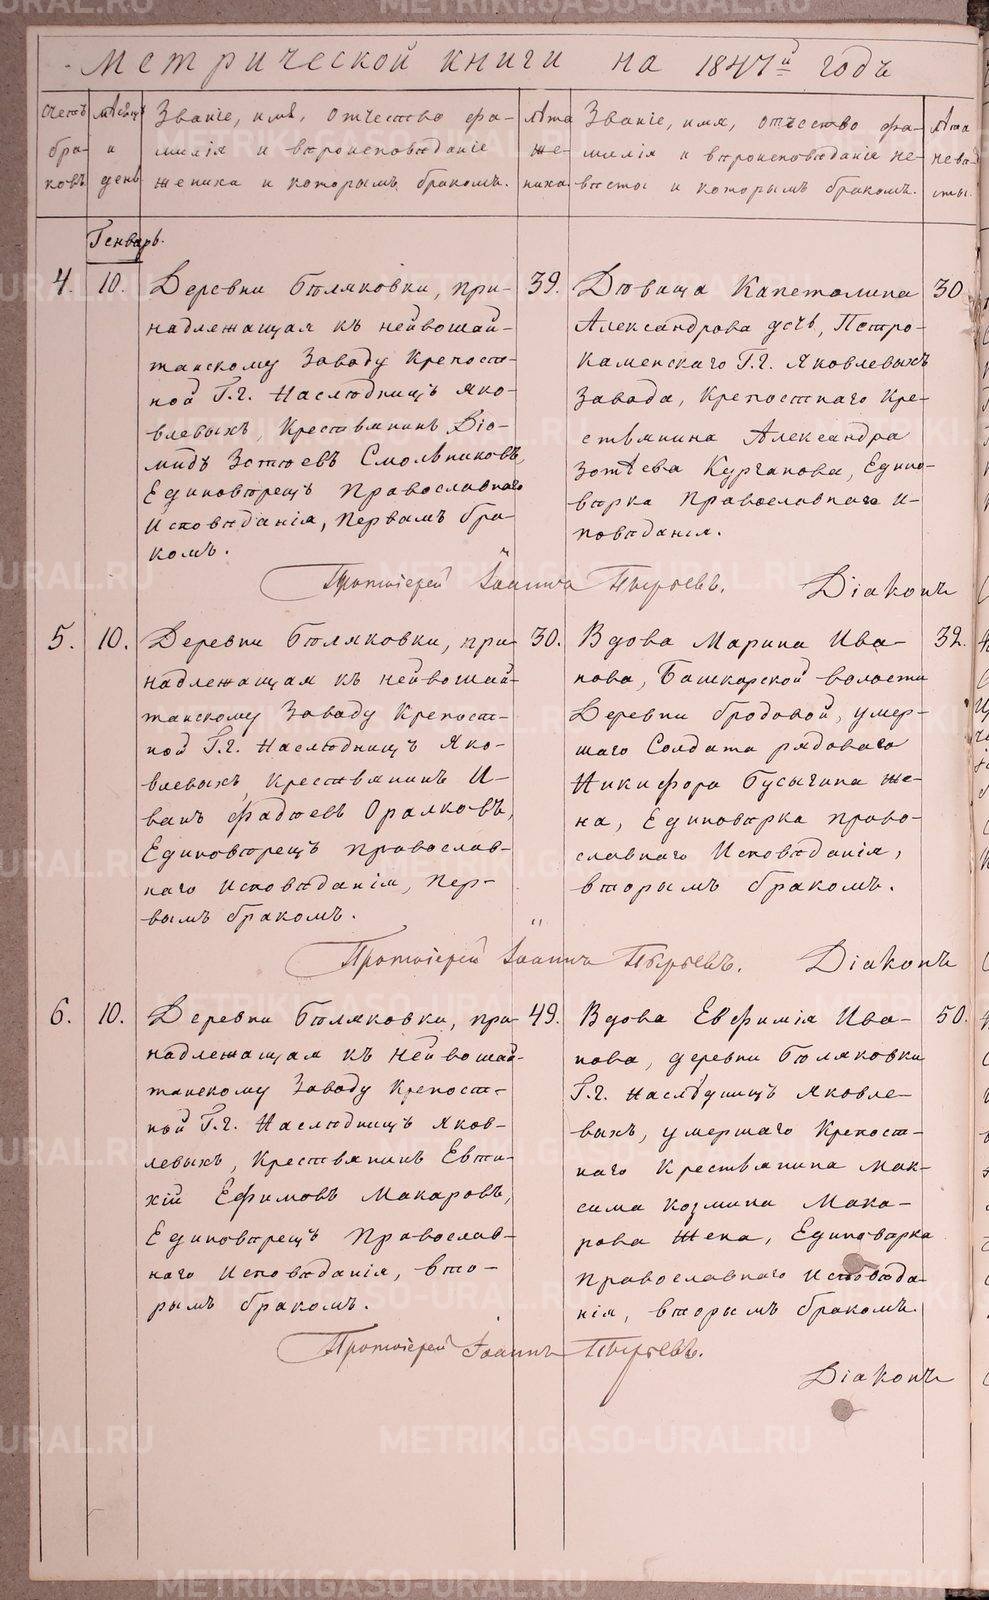 метрической книги на 1847й годъ
Счетъ браковъ
мѣсяцъ и день
Званіе, имя, отчество фамилія и вѣроисповѣданіе жениха и которымъ бракомъ.
лѣта жениха
Званіе, имя, отчество фамилія и вѣроисповѣданіе невѣсты и которымъ бракомъ.
лѣта невѣсты.
Генварь.
4. 10.
Деревни Бѣляковки, при-
надлежащая къ нейвошай-
танскому Заводу Крепост-
ной Г.г. Наслѣдницъ Яко-
влевыхъ, Крестьянинъ Діо-
мидъ Зотѣевъ Смольниковъ,
Единовѣрецъ Православнаго
Исповѣданія, первымъ бра-
комъ.
39.
Дѣвица Капетолина
Александрова дочь, Петро-
каменскаго Г.г. Яковлевыхъ
Завода, Крепостнаго Кре-
стьянина Александра
Зотѣева Курганова, Едино-
вѣрка Православнаго и-
повѣданія.
30
Протоіерей Іоаннъ Пырьевъ. Діаконъ
5. 10.
Деревни Бѣляковки, при-
надлежащая къ нейвошай-
танскому Заводу Крепост-
ной Г.г. Наслѣдницъ Яко-
влевыхъ Крестьянинъ И-
ванъ Фадѣевъ Оралковъ,
Единовѣрецъ православ-
наго исповѣданія, пер-
вымъ бракомъ.
30.
Вдова Марина Ива-
нова, Башкарской волости
Деревни бродовой, умер-
шаго Солдата рядоваго
Никифора Бусыгина же-
на, Единовѣрка право-
славнаго Исповѣданія,
вторымъ бракомъ.
32.
Протоіерей Іоаннъ Пырьевъ. Діаконъ
6. 10.
Деревни Бѣляковки, при-
надлежащая къ Нейвошай-
танскому Заводу Крепост-
ной Г.г. Наслѣдницъ Яков-
левыхъ, Крестьянинъ Евти-
хій Ефимовъ Макаровъ,
Единовѣрецъ Православ-
наго Исповѣданія, вто-
рымъ бракомъ.
49.
Вдова Евфимія Ива-
нова, деревни Бѣляковки
Г.г. Наслѣдницъ Яковле-
выхъ, умершаго Крепост-
наго Крестьянина Мак-
сима Козмина Мака-
рова Жена, Единовѣрка
Православнаго исповѣда-
нія, вторымъ бракомъ.
50.
Протоіерей Іоаннъ Пырьевъ.
Діаконъ
METRIKI.GASO-URAL.RU